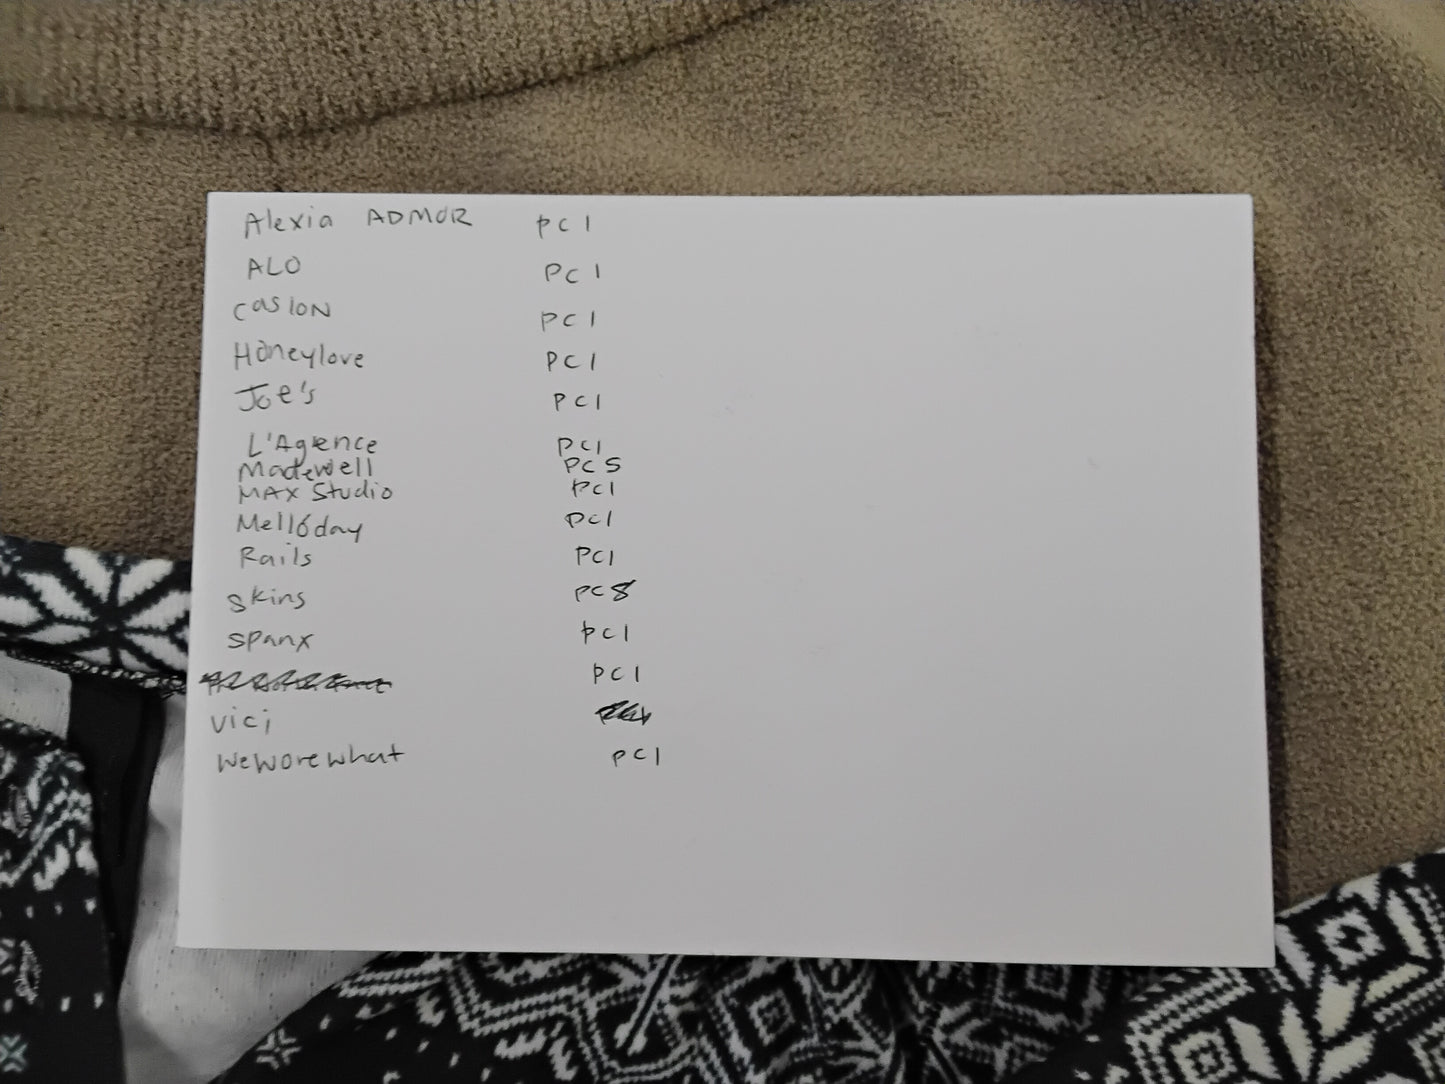 Alexia ADMOR pc 1
ALO pc 1
caslon pc 1
Honeylove pc 1
Joe's pc 1
L'Agence pc 1
Madewell pc 5
MAX Studio pc 1
Mellóday pc 1
Rails pc 1
skins pc 8
spanx pc 1
pc 1
vici
weworewhat pc 1